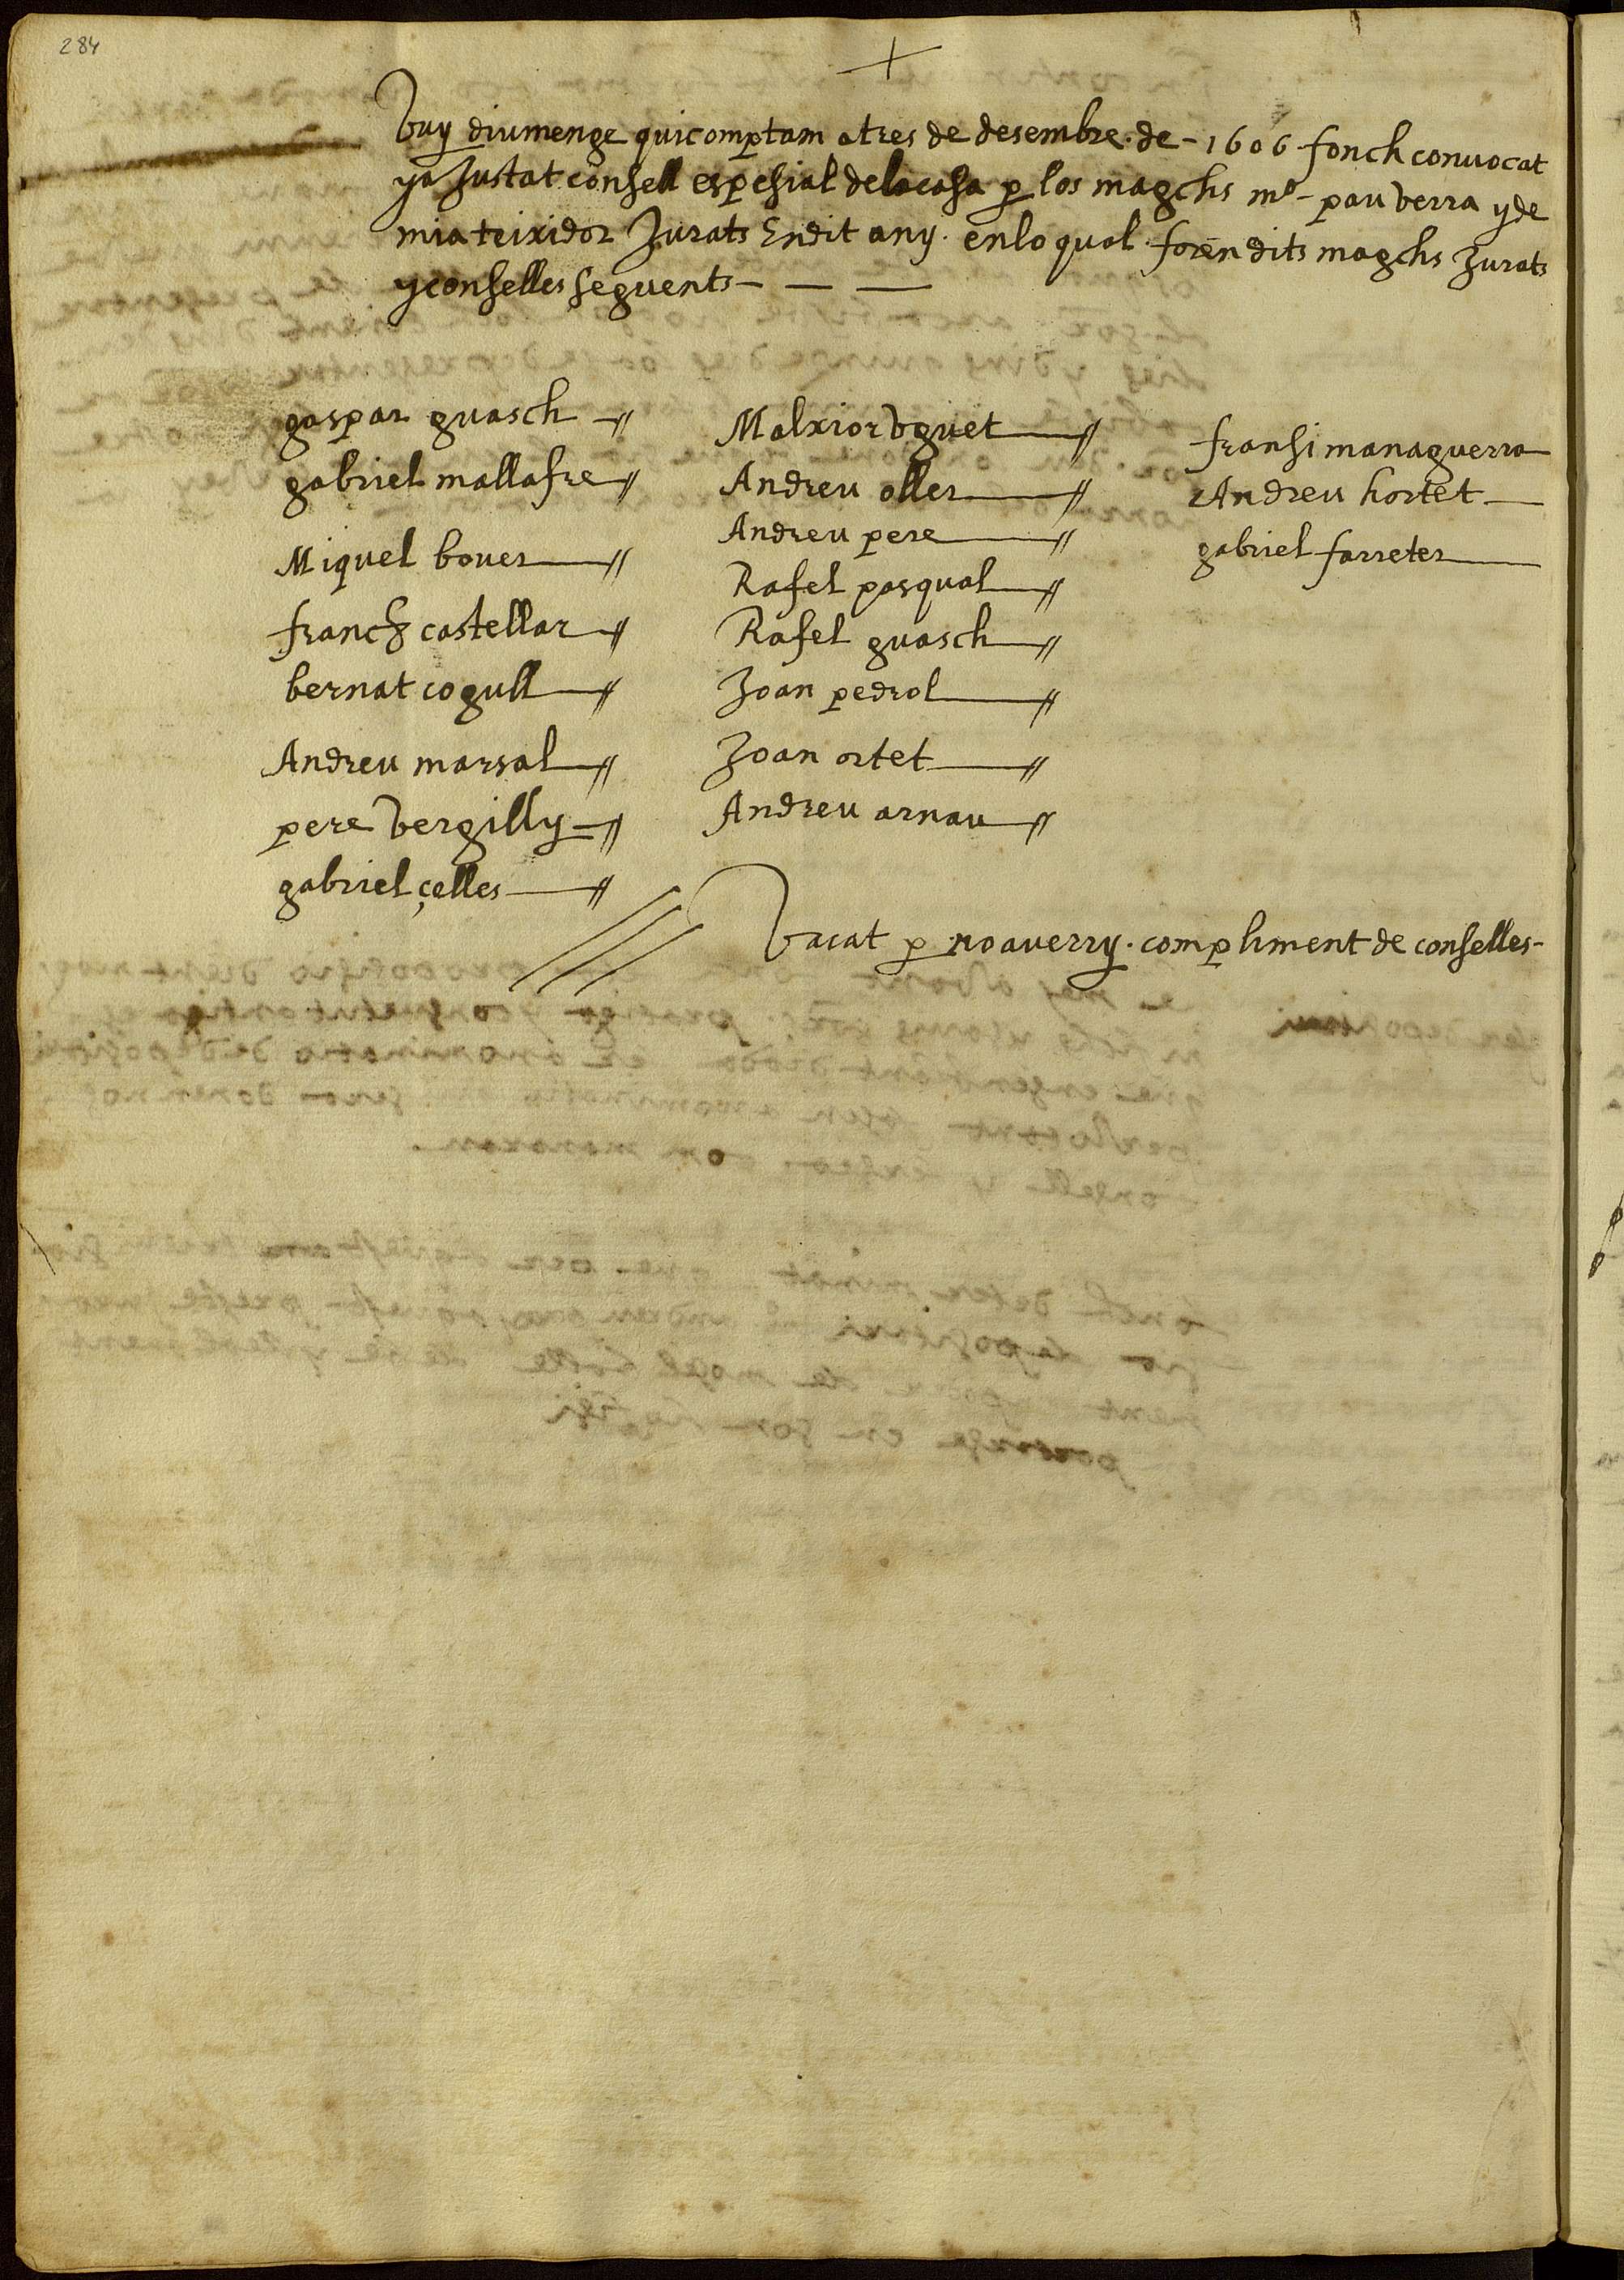 284
+
Vuy diumenge quicomptam atres de desembre. de - 1606 fonch conuocat
ya Justat consell espesial delacasa p los magchs mº - pau verra yde
mia teixidor Jurats Endit any. enlo qual foren dits magchs Jurats
yconselles seguents - — —
gaspar guasch
gabriel mallafre
Miquel bouer
franch castellar
bernat cogull
Andreu marsal
pere vergilly
gabriel çelles
Malxior vguet
Andreu oller
Andreu pere
Rafel pasqual
Rafel guasch
Joan pedrol
Joan ortet
Andreu arnau
fransi managuerra
Andreu hortet
gabriel farreter
Vacat p no auerry. compliment de conselles-